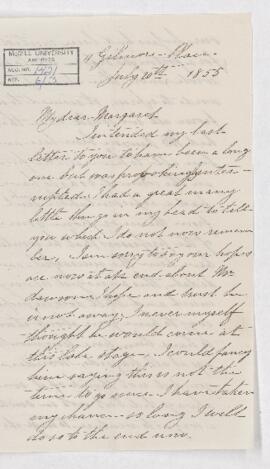 McGILL UNIVERSITY
ARCHIVES
ACC. NO. 1421
REF. 6/3
11 Gilmore Place
July 20th 1855
My dear Margaret
I intended my last
letter to you to have been a long
one but was provokingly inter-
rupted. I had a great many
little things in my head to tell
you which I do not now remem
ber, I am sorry to say our hopes
are now at an end about Mr
Dawson I hope and trust he
is not away, I never myself
thought he would come at
this late stage. I could fancy
him saying this is not the
time to go since I have taken
my chance so long I will
do so to the end now.